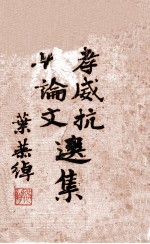 孝威抗
斗論文選集
葉恭綽